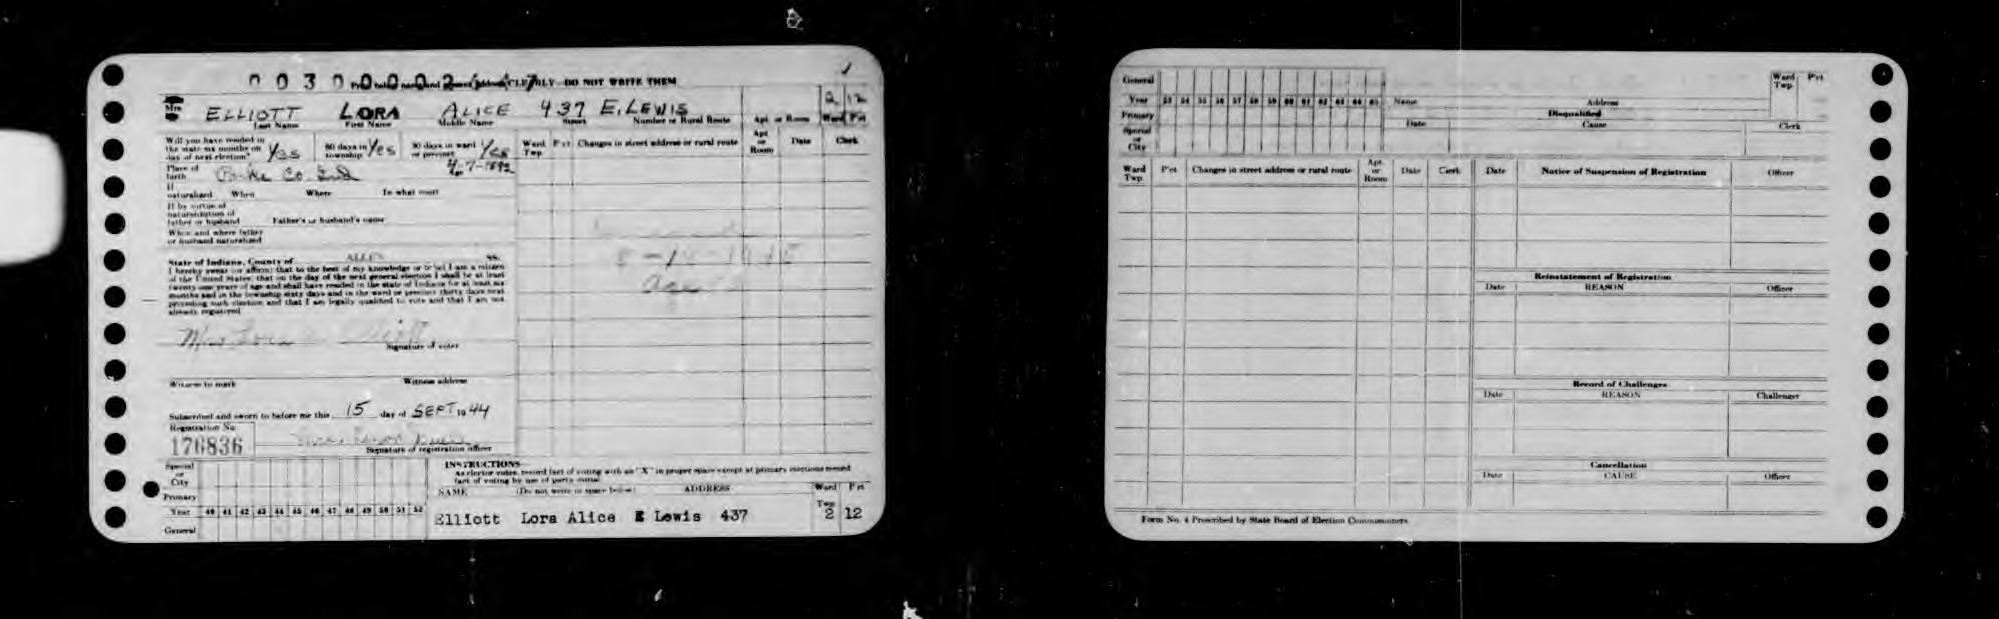 0 0 3 0 0 0 0 2 CLEARLY—DO NOT WRITE THEM
Mrs ELLIOTT LORA ALICE 437 E. LEWIS 2 12
Last Name First Name Middle Name Street Number or Rural Route Apt. or Room Ward Pct
Will you have resided in
the state six months on
day of next election? Yes 60 days in
township Yes 30 days in ward
or precinct Yes
Ward Twp. Pct Changes in street address or rural route Apt. or Room Date Clerk
Place of
birth Parke Co. Ind 7-1892
If
naturalized When Where In what court
If by virtue of
naturalization of
father or husband Father's or husband's name
When and where father
or husband naturalized
State of Indiana, County of ALLEN ss.
I hereby swear (or affirm) that to the best of my knowledge or belief I am a citizen
of the United States; that on the day of the next general election I shall be at least
twenty-one years of age and shall have resided in the state of Indiana for at least six
months and in the township sixty days and in the ward or precinct thirty days next
preceding such election and that I am legally qualified to vote and that I am not
already registered.
Mrs Lora
Signature of voter
Witness to mark Witness address
Subscribed and sworn to before me this 15 day of SEPT 1944
Registration No.
176836
Signature of registration officer
INSTRUCTIONS
As elector votes, record fact of voting with an "X" in proper space except at primary elections record
fact of voting by use of party initial.
NAME (Do not write in space below) ADDRESS Ward Twp. Pct
Special
or
City
Primary
Year 40 41 42 43 44 45 46 47 48 49 50 51 52
General
Elliott Lora Alice E Lewis 437 2 12
General
Year 53 54 55 56 57 58 59 60 61 62 63 64 65
Primary
Special
or
City
Name Address Ward Twp. Pct
Disqualified
Date Cause Clerk
Ward Twp. Pct Changes in street address or rural route Apt. or Room Date Clerk
Date Notice of Suspension of Registration Officer
Reinstatement of Registration
Date REASON Officer
Record of Challenges
Date REASON Challenger
Cancellation
Date CAUSE Officer
Form No. 4 Prescribed by State Board of Election Commissioners